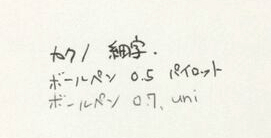 カクノ 細字.
ボールペン 0.5 パイロット
ボールペン 0.7. uni